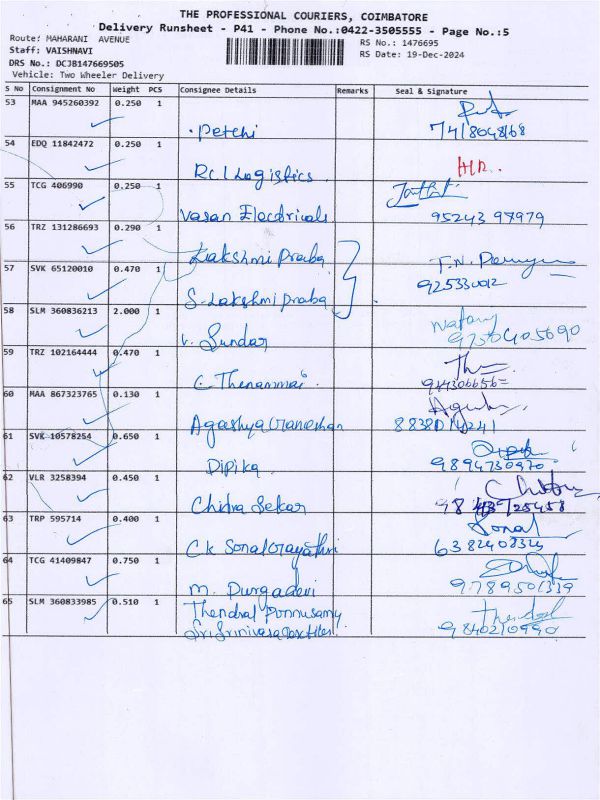 THE PROFESSIONAL COURIERS, COIMBATORE
Delivery Runsheet - P41 - Phone No.:0422-3505555 - Page No.:5
Route: MAHARANI AVENUE
RS No.: 1476695
Staff: VAISHNAVI
RS Date: 19-Dec-2024
DRS No.: DCJB147669505
Vehicle: Two Wheeler Delivery
S No Consignment No Weight PCS Consignee Details Remarks Seal & Signature
53 MAA 945260392 0.250 1
Petchi 7418048168
54 EDQ 11842472 0.250 1
RCI Logistics
55 TCG 406990 0.250 1
Vasan Electricals 95243 97979
56 TRZ 131286693 0.290 1
Lakshmi Praba
57 SVK 65120010 0.470 1
S. Lakshmi praba
58 SLM 360836213 2.000 1
V. Sundar
59 TRZ 102164444 0.470 1
C. Thenammai
60 MAA 867323765 0.130 1
61 SVK 10578254 0.650 1
Dipika 9894730970
62 VLR 3258394 0.450 1
Chitra Sekar
63 TRP 595714 0.400 1 Sonal
64 TCG 41409847 0.750 1
M. Durgadevi 9789501339
65 SLM 360833985 0.510 1 Thendral Ponnusamy
9840210990